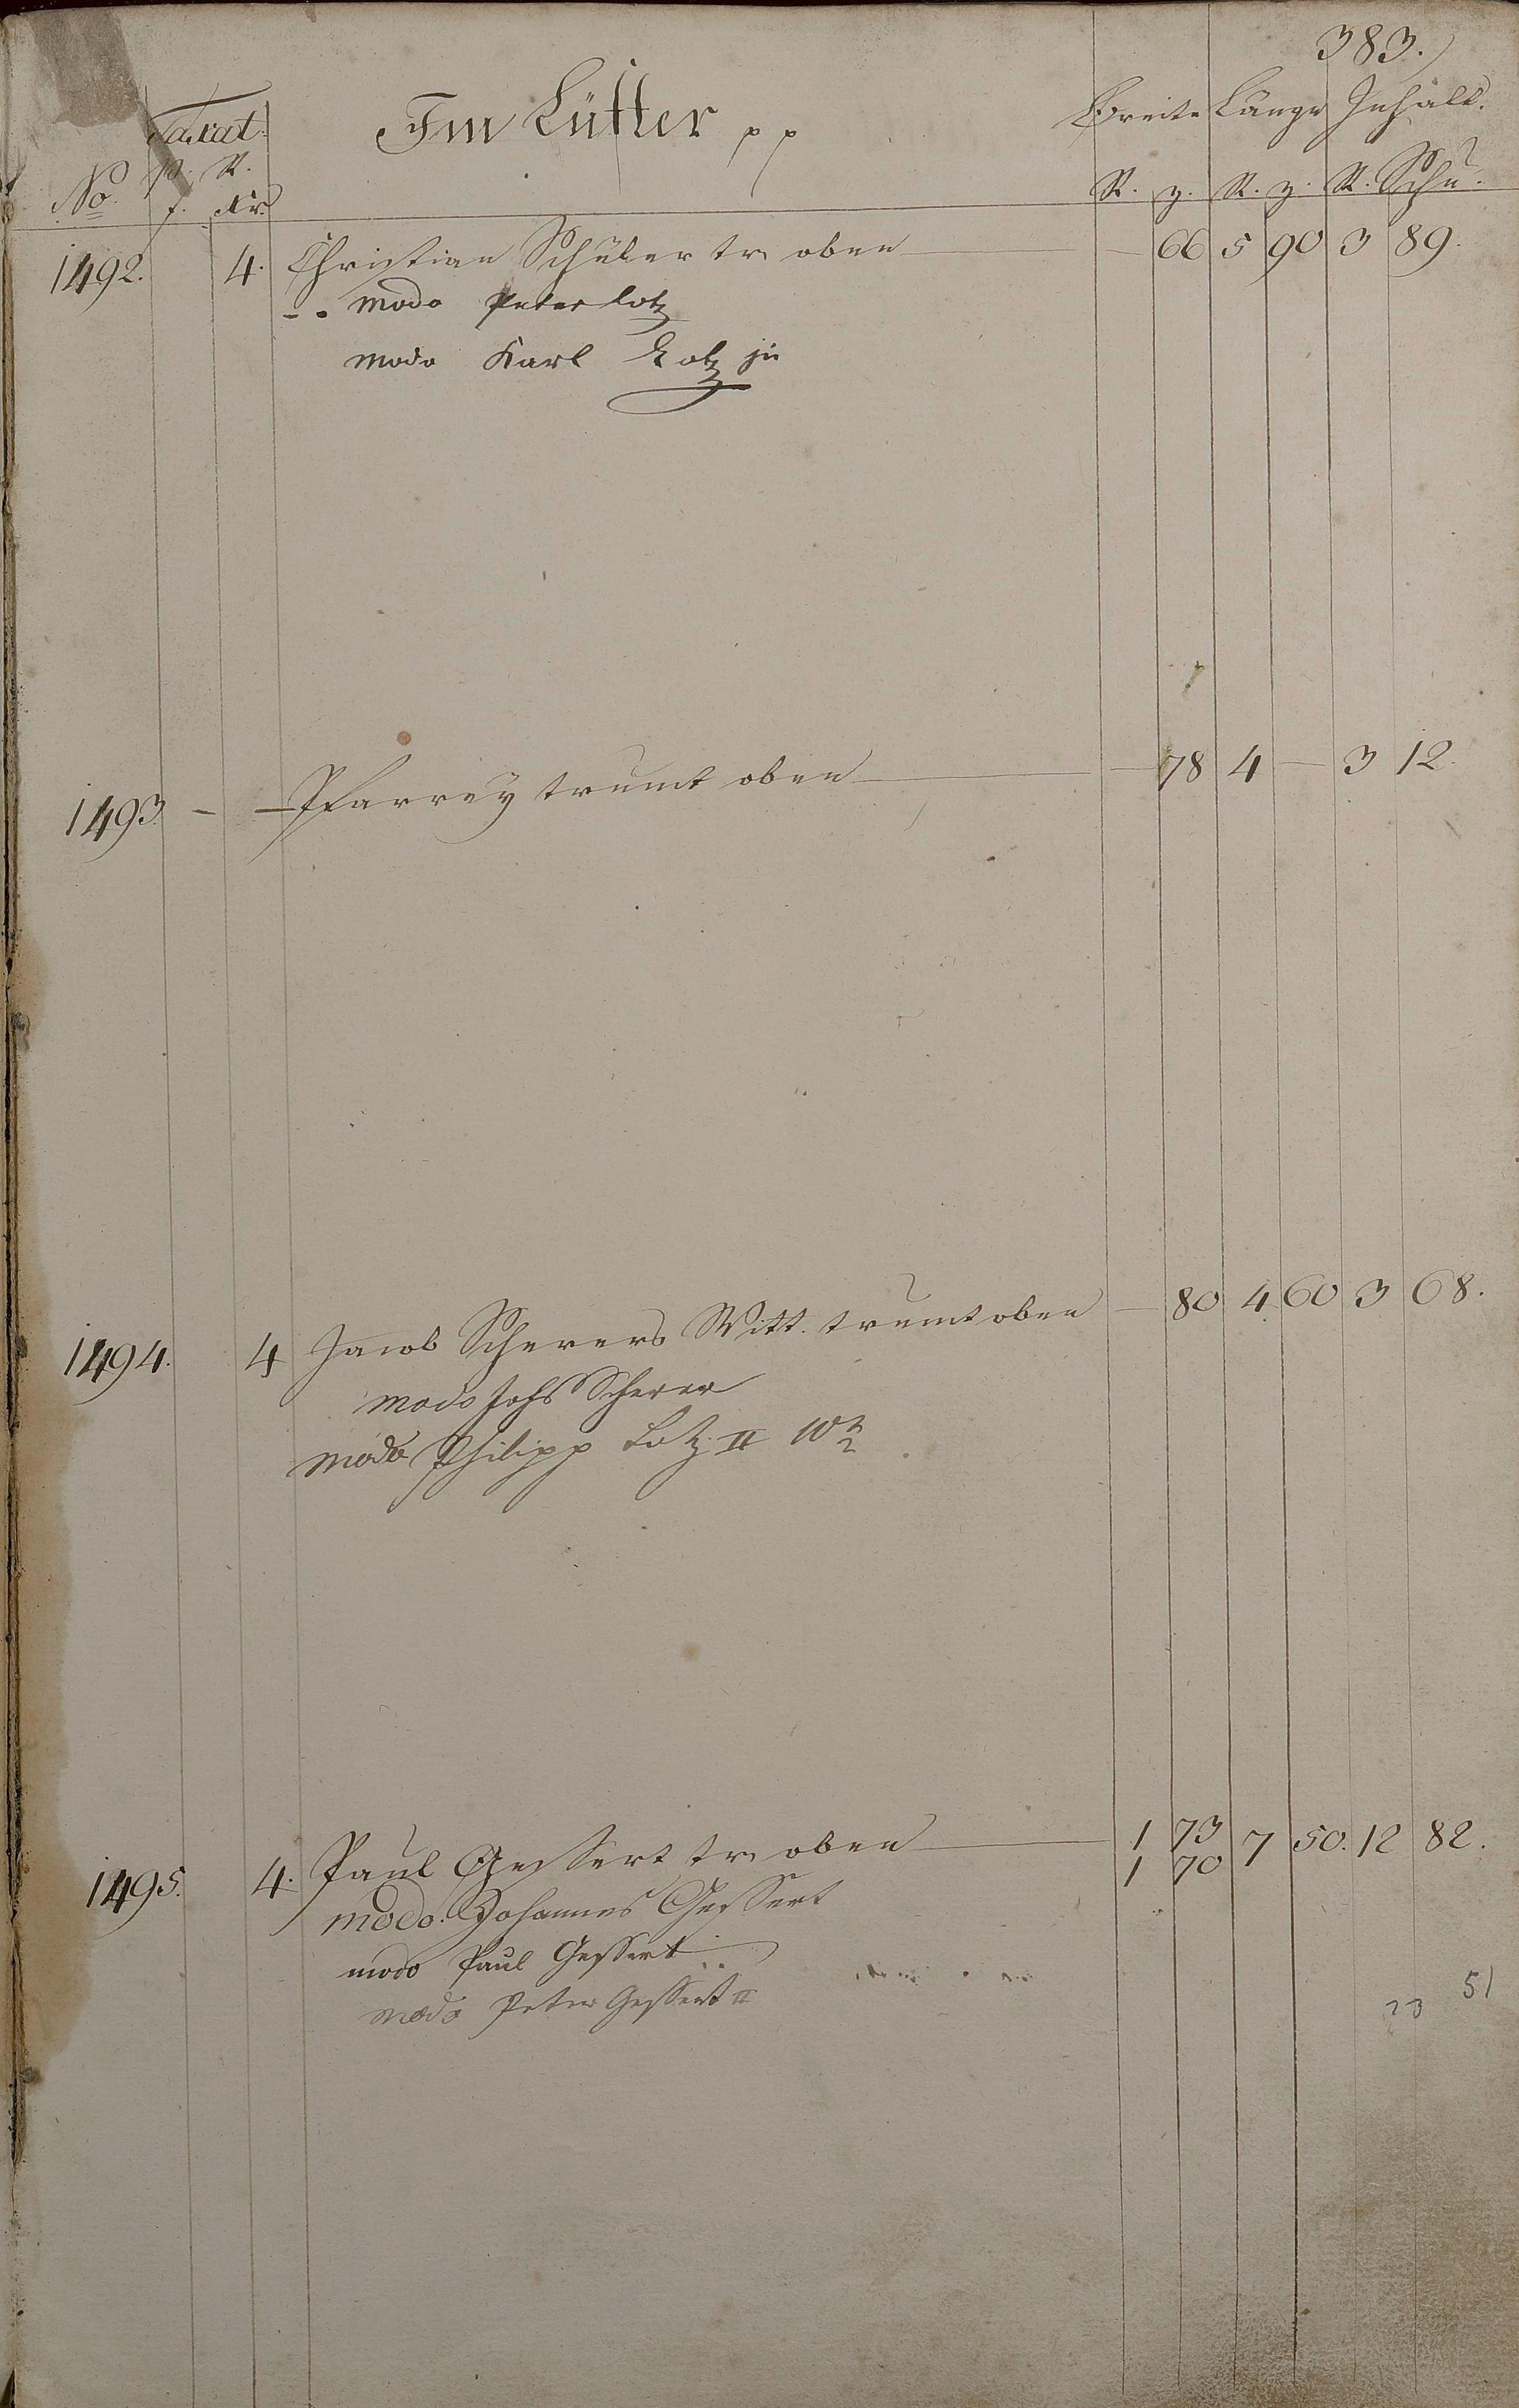 383.
Taxat. Im Lütter pp Breite Länge Inhalt.
No. p. R. R. z. R. z. R. Schu.
f. Kr.
1492. 4. Christian Schüler tr. oben — 66 5 90 3 89.
modo Peter Lotz
modo Karl Lotz ju
1493 - - Pfarrey trumt oben — 78 4 — 3 12.
1494. 4 Jacob Scherers Witt. trumt oben — 80 4 60 3 68.
modo Johs Scherer
modo Philipp Lotz II
1495. 4. Paul Gessert tr. oben 1 73 7 50. 12 82.
1 70
modo: Johannes Gessert
modo Paul Gessert
modo Peter Gessert II
23 51